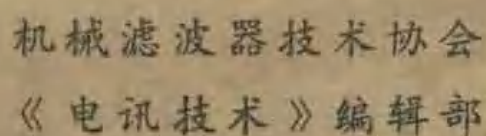 机械滤波器技术协会
《电讯技术》编辑部